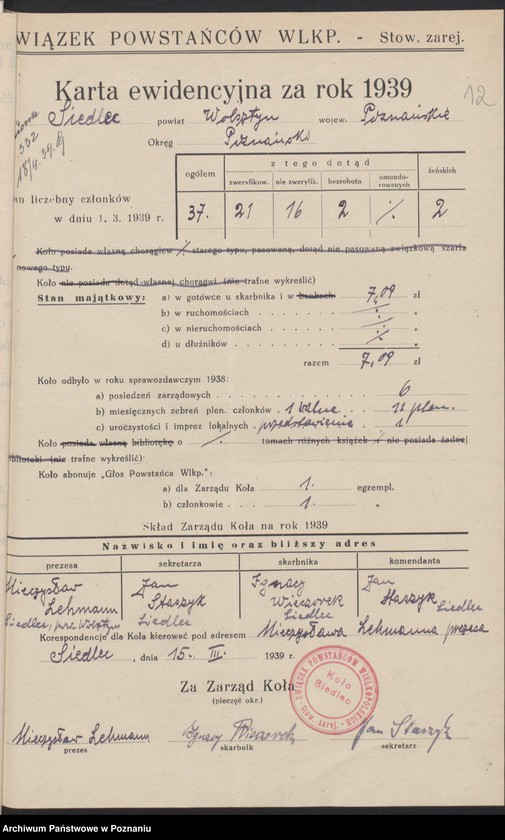 WIĄZEK POWSTAŃCÓW WLKP. - Stow. zarej.
Karta ewidencyjna za rok 1939
12
Siedlec powiat Wolsztyn wojew. Poznańskie
Okręg Poznański
332
18/4.39.
z tego dotąd
ogółem zweryfikow. nie zweryfik. bezrobotn. umundurowanych żeńskich
an liczebny członków
w dniu 1. 3. 1939 r. 37. 21 16 2 ⁒ 2
Koło posiada własną chorągiew ⁒ starego typu, pasowaną, dotąd nie pasowaną związkową szarfa
nowego typu.
Koło nie posiada dotąd własnej chorągwi (nie trafne wykreślić)
Stan majątkowy: a) w gotówce u skarbnika i w bankach 7,09 zł
b) w ruchomościach ⁒ "
c) w nieruchomościach ⁒ "
d) u dłużników ⁒ "
razem 7,09 zł
Koło odbyło w roku sprawozdawczym 1938:
a) posiedzeń zarządowych 6
b) miesięcznych zebrań plen. członków 1 walne 11 plen.
c) uroczystości i imprez lokalnych przedstawienia 1
Koło posiada własną bibliotekę o ⁒ tomach różnych książek / nie posiada żadnej
biblioteki (nie trafne wykreślić):
Koło abonuje „Głos Powstańca Wlkp.":
a) dla Zarządu Koła 1. egzempl.
b) członkowie 1. "
Skład Zarządu Koła na rok 1939
Nazwisko i imię oraz bliższy adres
prezesa sekretarza skarbnika komendanta
Mieczysław Jan Ignacy Jan
Lehmann Staszyk Wieczorek Staszyk
Siedlec, pow. Wolsztyn Siedlec Siedlec Siedlec
Korespondencje dla Koła kierować pod adresem Mieczysława Lehmanna prezesa
Siedlec, dnia 15. III. 1939 r.
Za Zarząd Koła
(pieczęć okr.)
ZWIĄZEK POWSTAŃCÓW WIELKOPOLSKICH
Koło
Siedlec
Stow. zarej.
Mieczysław Lehmann Ignacy Wieczorek Jan Staszyk
prezes skarbnik sekretarz
Archiwum Państwowe w Poznaniu